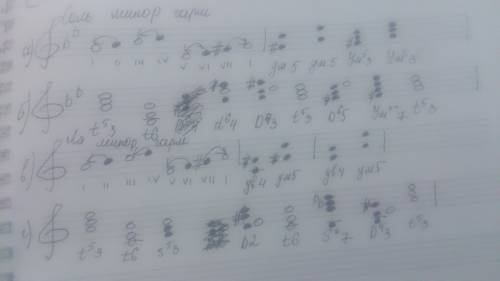 Соль минор гарм
а) I II III IV V VI VII I ум5 ум5 ум53 ум53
б) t53 t6 d64 D43 t53 D65 7 t53
Ля минор гарм
в) I II III IV V VI VII I ув4 ум5 ув4 ум5
г) t53 t6 s53 D2 t6 S7 D43 t53